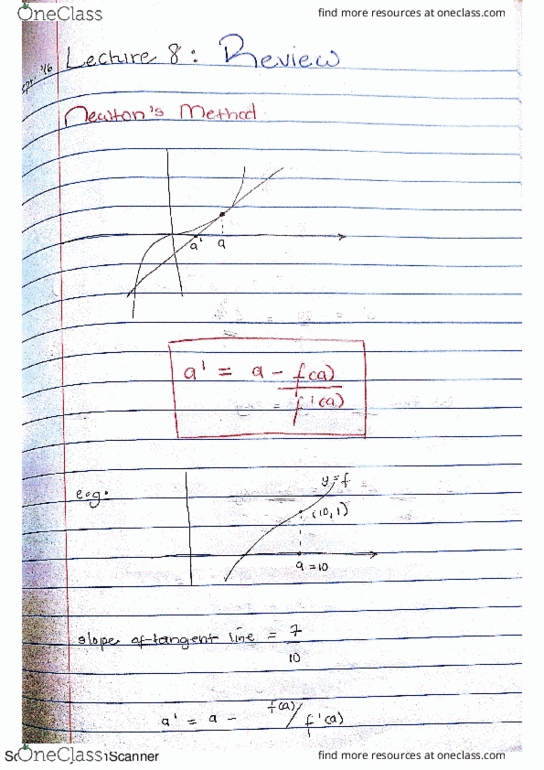 OneClass
find more resources at oneclass.com
Lecture 8: Review
Newton's Method
a' a
a' = a - f(a)
f'(a)
e.g.
y=f
(10,1)
a=10
slope of tangent line = 7
10
a' = a - f(a)/f'(a)
OneClass
Scanner
find more resources at oneclass.com